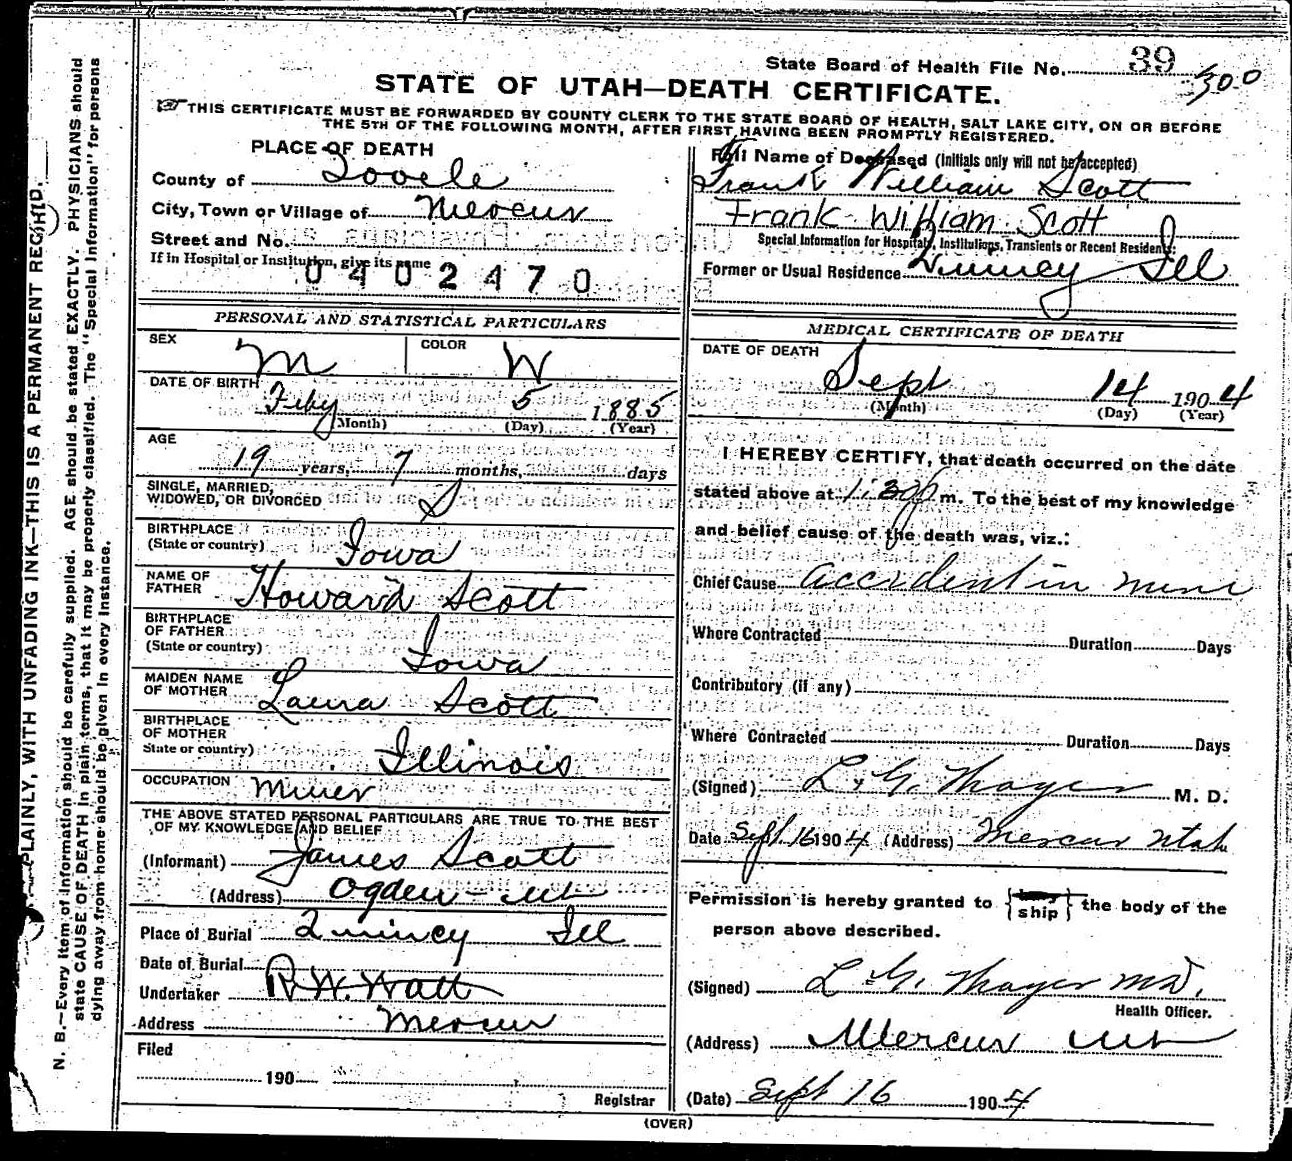 State Board of Health File No. 39
300
STATE OF UTAH—DEATH CERTIFICATE.
THIS CERTIFICATE MUST BE FORWARDED BY COUNTY CLERK TO THE STATE BOARD OF HEALTH, SALT LAKE CITY, ON OR BEFORE
THE 5TH OF THE FOLLOWING MONTH, AFTER FIRST HAVING BEEN PROMPTLY REGISTERED.
PLACE OF DEATH
County of Tooele
City, Town or Village of Mercur
Street and No.
If in Hospital or Institution, give its name
0402470
Full Name of Deceased (Initials only will not be accepted)
Frank William Scott
Frank William Scott
Special Information for Hospitals, Institutions, Transients or Recent Residents:
Former or Usual Residence Quincy Ill
PERSONAL AND STATISTICAL PARTICULARS
SEX M COLOR W
DATE OF BIRTH Feby 5 1885
(Month) (Day) (Year)
AGE
19 years, 7 months, days
SINGLE, MARRIED,
WIDOWED, OR DIVORCED S
BIRTHPLACE
(State or country) Iowa
NAME OF
FATHER Howard Scott
BIRTHPLACE
OF FATHER
(State or country) Iowa
MAIDEN NAME
OF MOTHER Laura Scott
BIRTHPLACE
OF MOTHER
State or country) Illinois
OCCUPATION Miner
THE ABOVE STATED PERSONAL PARTICULARS ARE TRUE TO THE BEST
OF MY KNOWLEDGE AND BELIEF
(Informant) James Scott
(Address) Ogden - Ut
Place of Burial Quincy Ill
Date of Burial
Undertaker R. W. Watt
Address Mercur
Filed
190
Registrar
MEDICAL CERTIFICATE OF DEATH
DATE OF DEATH
Sept 14 1904
(Month) (Day) (Year)
I HEREBY CERTIFY, that death occurred on the date
stated above at 1:30 p m. To the best of my knowledge
and belief cause of the death was, viz.:
Chief Cause accident in mine
Where Contracted Duration Days
Contributory (if any)
Where Contracted Duration Days
(Signed) L. G. Thayer M. D.
Date Sept. 16 1904 (Address) Mercur Utah
Permission is hereby granted to ship the body of the
person above described.
(Signed) L. G. Thayer MD.
Health Officer.
(Address) Mercur Ut
(Date) Sept 16 1904
(OVER)
PLAINLY, WITH UNFADING INK—THIS IS A PERMANENT RECORD.
N. B.—Every item of information should be carefully supplied. AGE should be stated EXACTLY. PHYSICIANS should
state CAUSE OF DEATH in plain terms, that it may be properly classified. The "Special Information" for persons
dying away from home should be given in every instance.